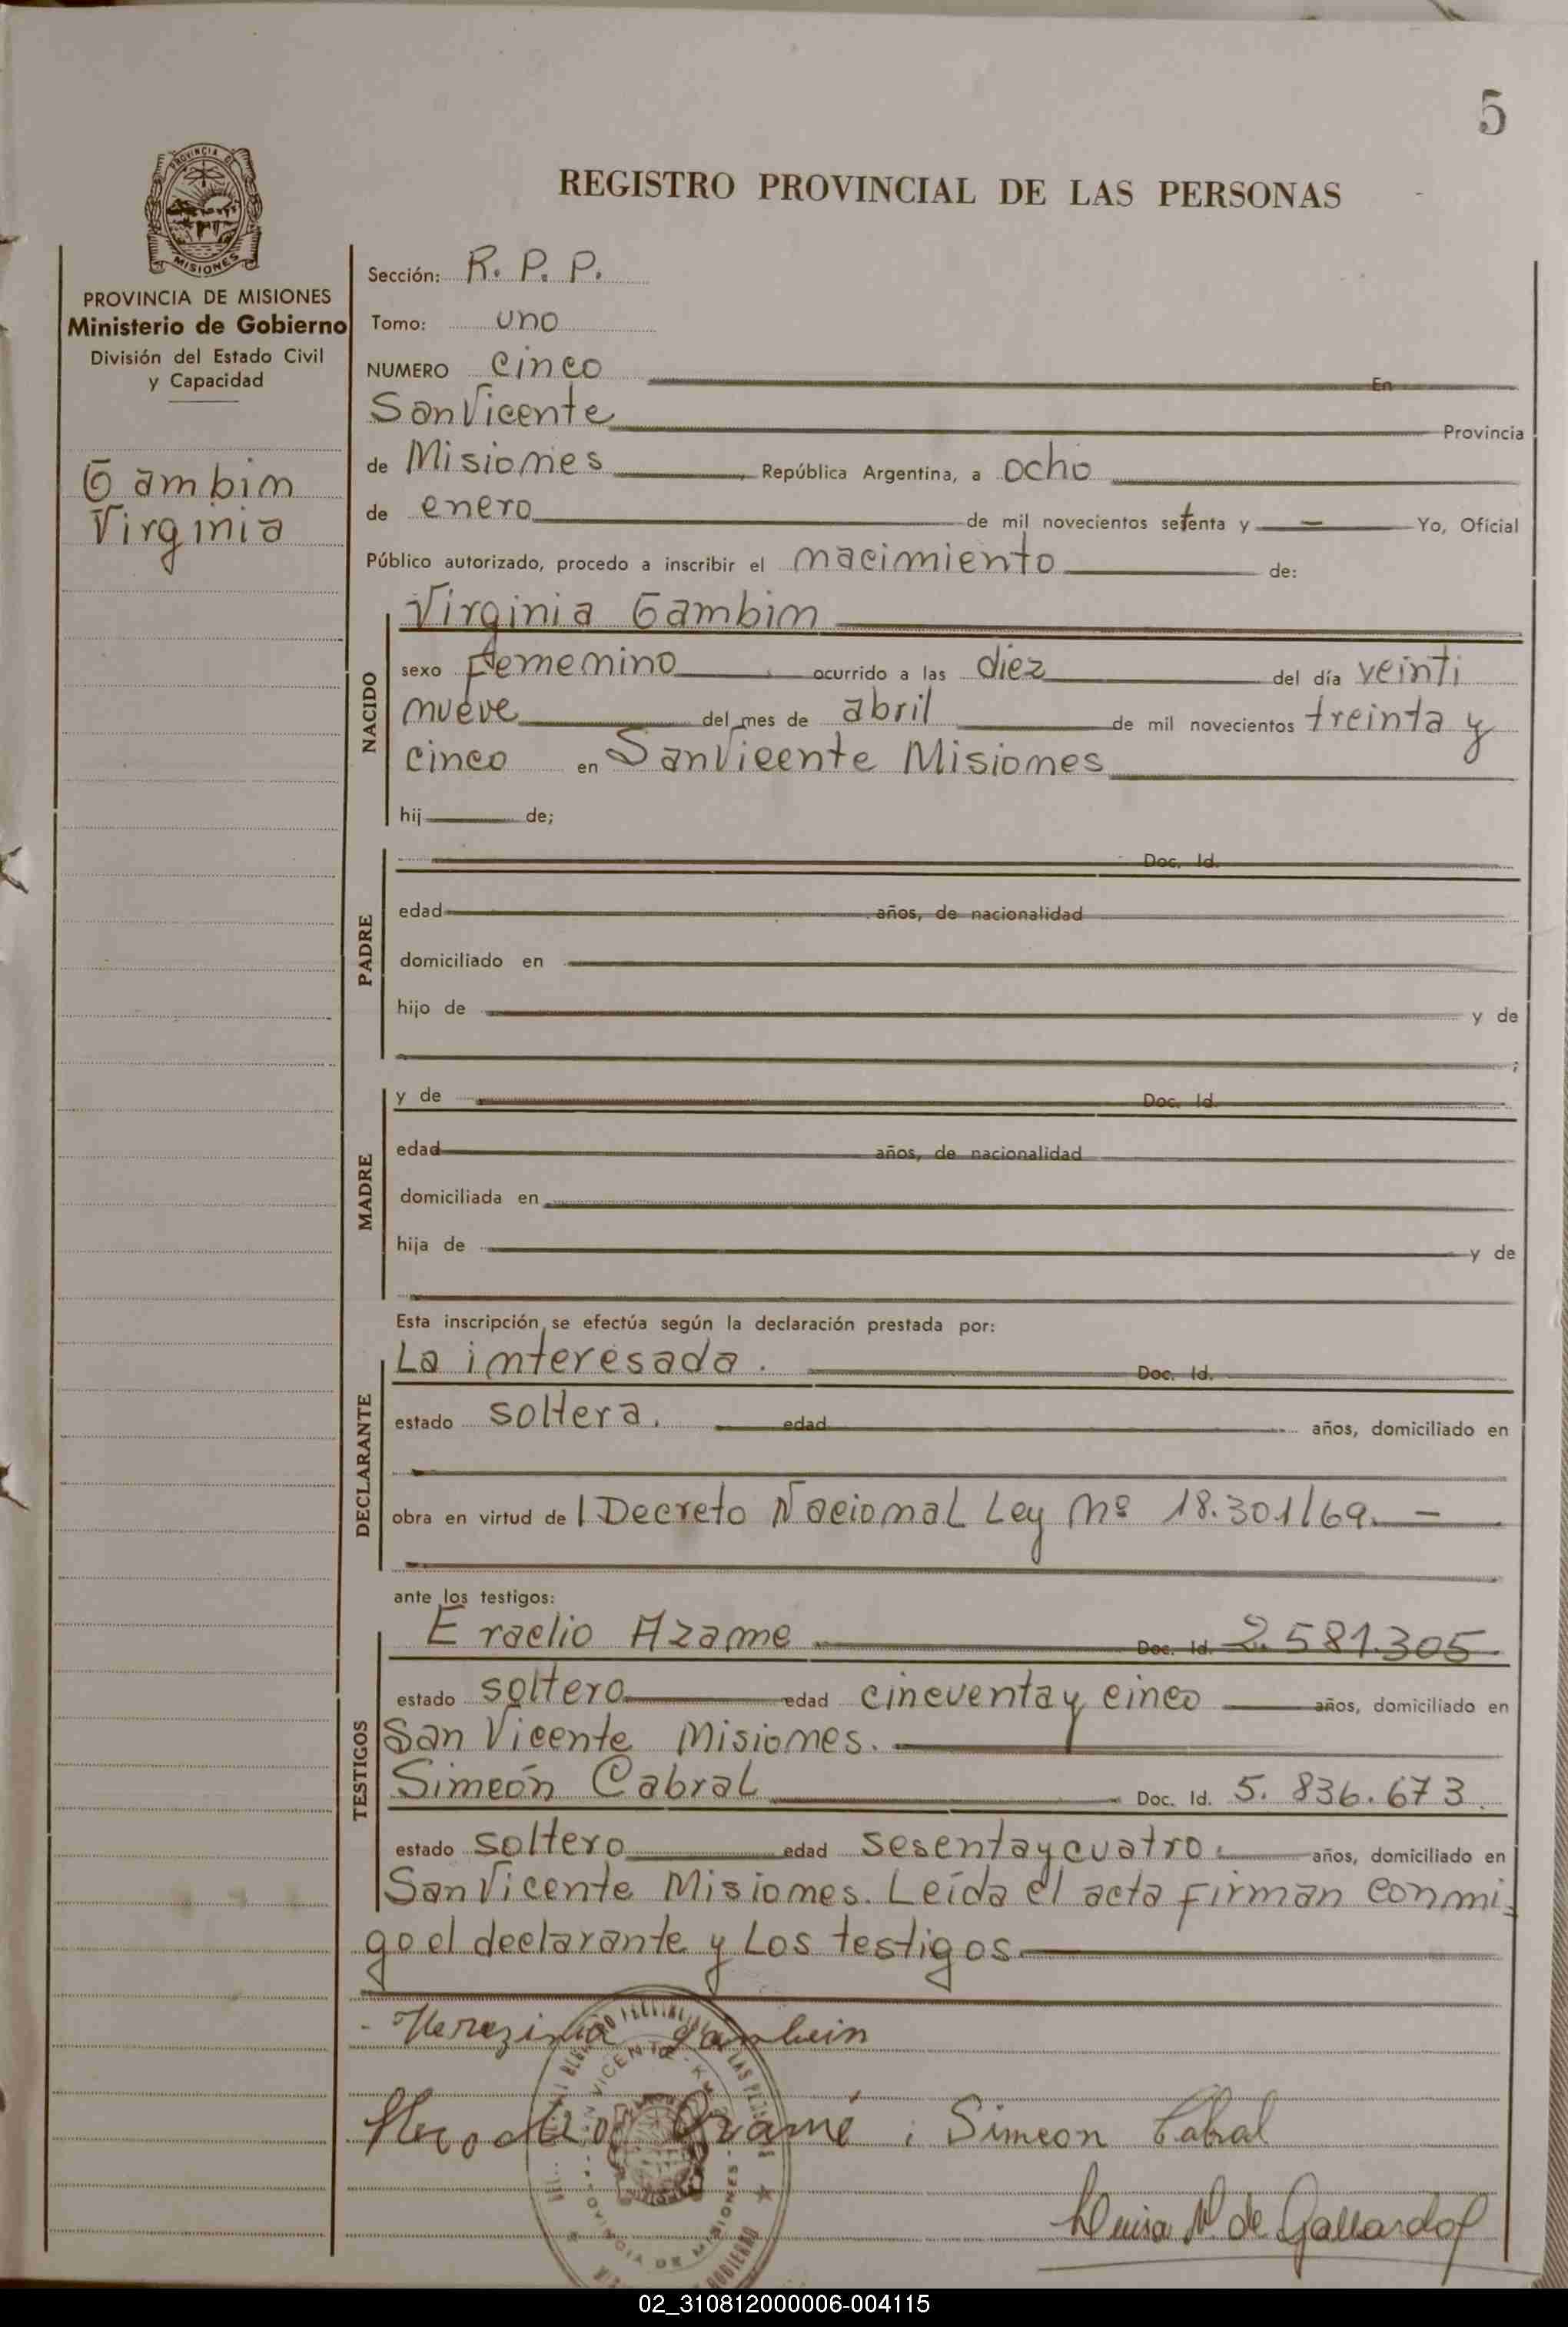 5
PROVINCIA DE
MISIONES
REGISTRO PROVINCIAL DE LAS PERSONAS
PROVINCIA DE MISIONES
Ministerio de Gobierno
División del Estado Civil
y Capacidad
Gambin
Virginia
Sección: R. P. P.
Tomo: uno
NUMERO cinco En
San Vicente Provincia
de Misiones, República Argentina, a ocho
de enero de mil novecientos setenta y — Yo, Oficial
Público autorizado, procedo a inscribir el nacimiento de:
Virginia Gambin
NACIDO
sexo femenino ocurrido a las diez del día veinti
nueve del mes de abril de mil novecientos treinta y
cinco en San Vicente Misiones
hij de;
PADRE
Doc. Id.
edad años, de nacionalidad
domiciliado en
hijo de y de
;
MADRE
y de Doc. Id.
edad años, de nacionalidad
domiciliada en
hija de y de
Esta inscripción se efectúa según la declaración prestada por:
DECLARANTE
La interesada. Doc. Id.
estado soltera. edad años, domiciliado en
obra en virtud de l Decreto Nacional Ley Nº 18.301/69. —
ante los testigos:
TESTIGOS
Eraclio Azame Doc. Id. 2.581.305
estado soltero edad cincuenta y cinco años, domiciliado en
San Vicente Misiones.
Simeón Cabral Doc. Id. 5.836.673.
estado soltero edad sesenta y cuatro años, domiciliado en
San Vicente Misiones. Leída el acta firman conmi-
go el declarante y los testigos
Gambin
Simeon Cabral
Luisa de Gallardo
02_310812000006-004115